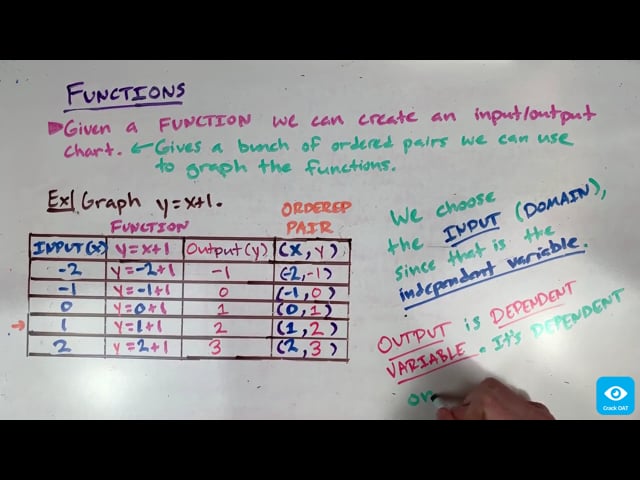 FUNCTIONS
Given a FUNCTION we can create an input/output
chart. ← Gives a bunch of ordered pairs we can use
to graph the functions.
Ex| Graph y=x+1.
FUNCTION
ORDERED
PAIR
INPUT(x) y=x+1 Output(y) (x,y)
-2 y=-2+1 -1 (-2,-1)
-1 y=-1+1 0 (-1,0)
0 y=0+1 1 (0,1)
→ 1 y=1+1 2 (1,2)
2 y=2+1 3 (2,3)
We choose
the INPUT (DOMAIN),
since that is the
independent variable.
OUTPUT is DEPENDENT
VARIABLE. It's DEPENDENT
on
Crack OAT